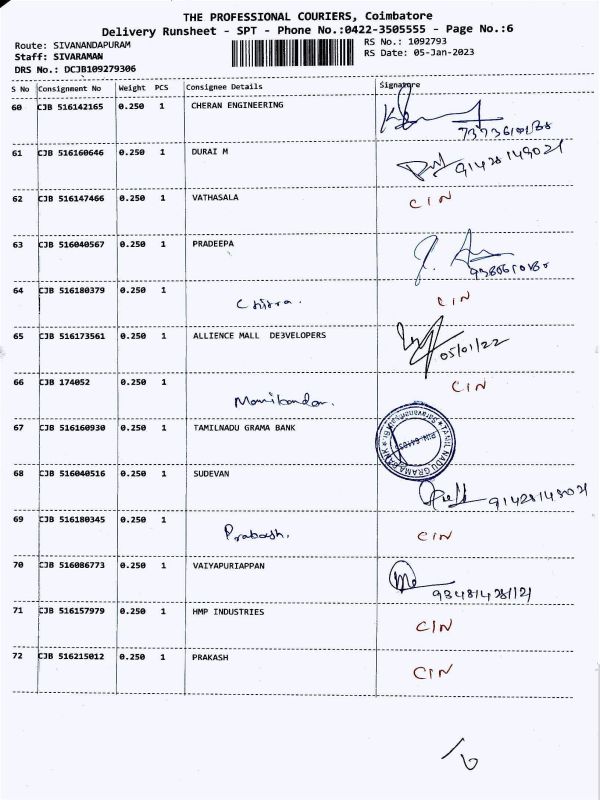 THE PROFESSIONAL COURIERS, Coimbatore
Delivery Runsheet - SPT - Phone No.:0422-3505555 - Page No.:6
Route: SIVANANDAPURAM RS No.: 1092793
Staff: SIVARAMAN RS Date: 05-Jan-2023
DRS No.: DCJB109279306
S No Consignment No Weight PCS Consignee Details Signature
60 CJB 516142165 0.250 1 CHERAN ENGINEERING
61 CJB 516160646 0.250 1 DURAI M
62 CJB 516147466 0.250 1 VATHASALA CIN
63 CJB 516040567 0.250 1 PRADEEPA
64 CJB 516180379 0.250 1 CIN
65 CJB 516173561 0.250 1 ALLIENCE MALL DE3VELOPERS
05/01/22
66 CJB 174052 0.250 1 CIN
Manibandan.
67 CJB 516160930 0.250 1 TAMILNADU GRAMA BANK
TAMIL NADU GRAMA BANK
68 CJB 516040516 0.250 1 SUDEVAN
69 CJB 516180345 0.250 1
Prabash. CIN
70 CJB 516086773 0.250 1 VAIYAPURIAPPAN
71 CJB 516157979 0.250 1 HMP INDUSTRIES
CIN
72 CJB 516215012 0.250 1 PRAKASH
CIN